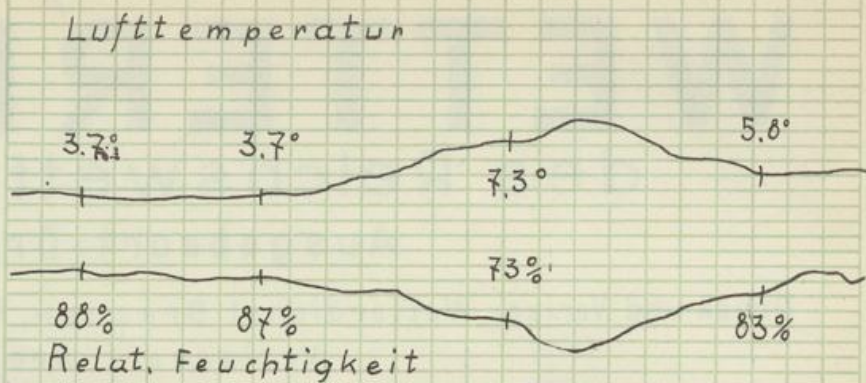 Lufttemperatur
3.7° 3.7° 5.8°
7.3°
73%
88% 87% 83%
Relat. Feuchtigkeit